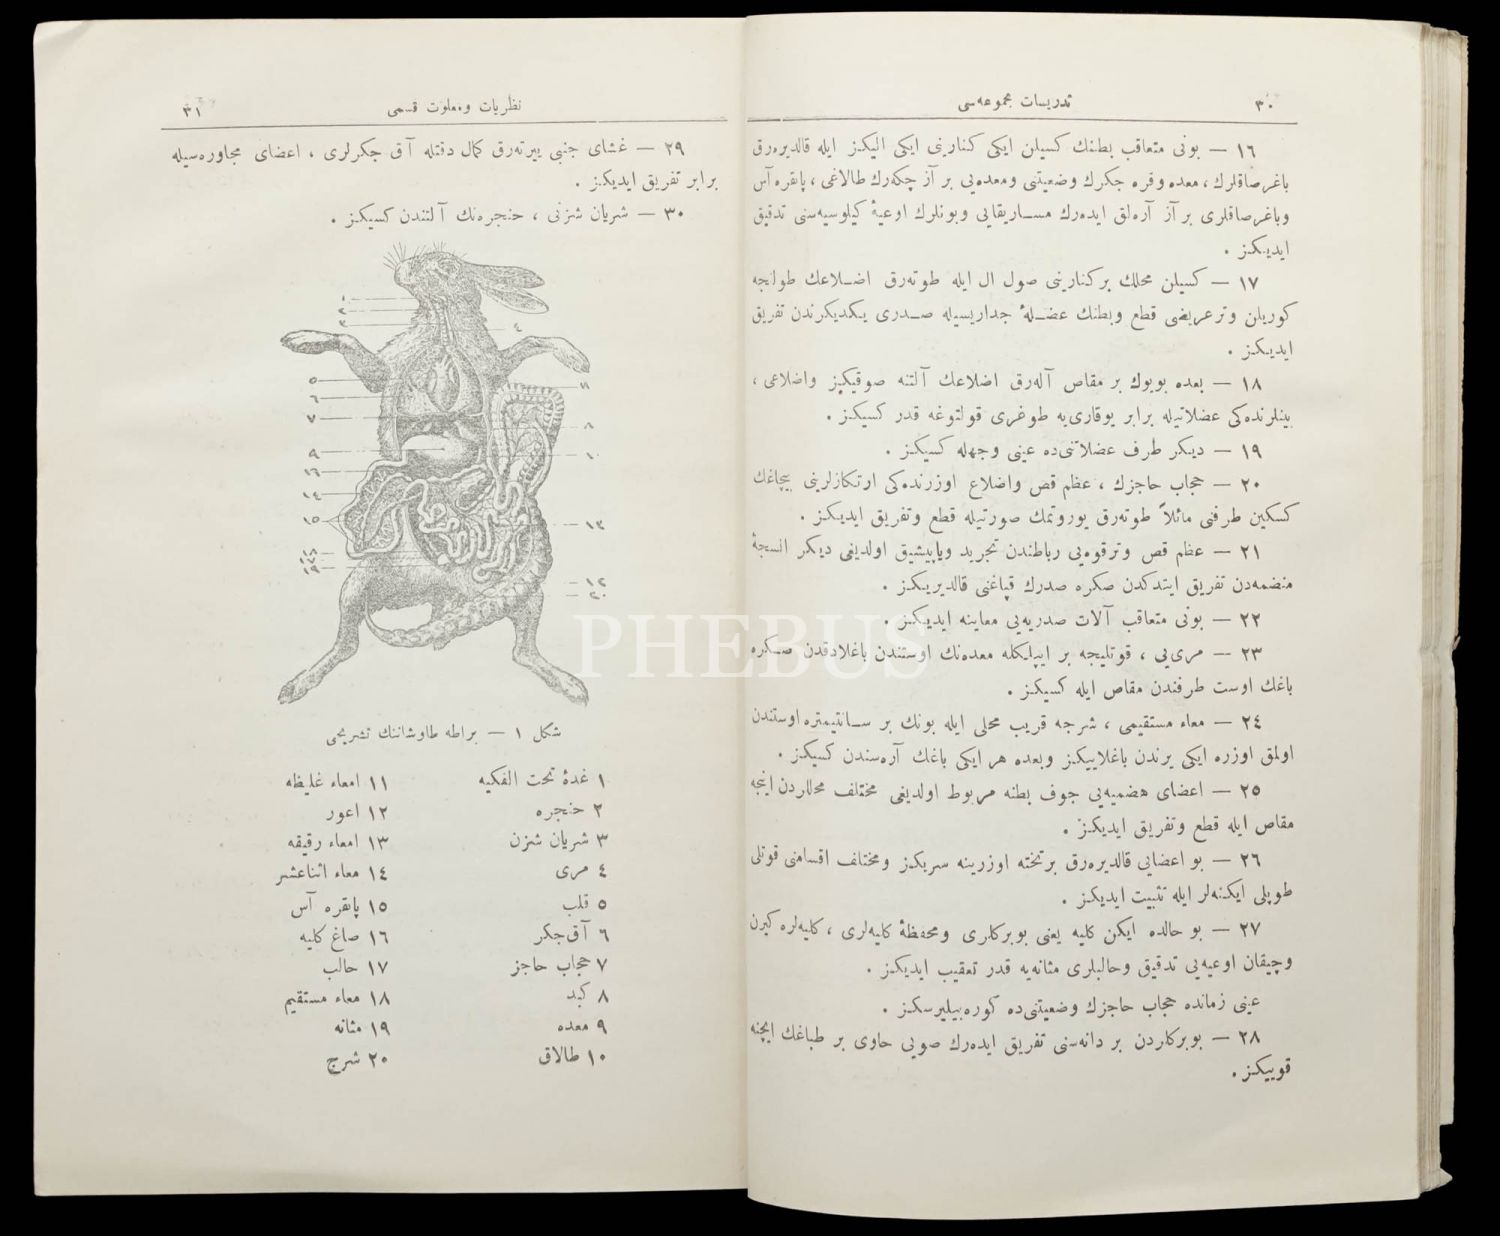 ٣٠
تدریسات مجموعه‌سی
١٦ — بونی متعاقب بطنك كسیلن ایكی كنارینی ایكی الیكز ایله قالدیره‌رق
باغرصاقلرك ، معده وقره جكرك وضعیتنی ومعده‌یی بر آز چكه‌رك طالاغی ، پانقره آس
وباغرصاقلری بر آز آره‌لق ایده‌رك مساریقایی وبونلرك اوعیهٔ كیلوسیه‌سنی تدقیق
ایدیكز .
١٧ — كسیلن محلك بر كنارینی صول ال ایله طوته‌رق اضلاعك طولنجه
كوریلن وتر عریضی قطع وبطنك عضلهٔ جداریسیله صدری یكدیكرندن تفریق
ایدیكز .
١٨ — بعده بویوك بر مقاص آله‌رق اضلاعك آلتنه صوقیكز واضلاعی ،
بینلرنده‌كی عضلاتیله برابر یوقاری‌یه طوغری قولتوغه قدر كسیكز .
١٩ — دیكر طرف عضلاتنی‌ده عینی وجهله كسیكز .
٢٠ — حجاب حاجزك ، عظم قص واضلاع اوزرنده‌كی ارتكازلرینی بیچاغك
كسكین طرفنی مائلاً طوته‌رق یوروتمك صورتیله قطع وتفریق ایدیكز .
٢١ — عظم قص وترقوه‌یی رباطندن تجرید ویاپیشیق اولدیغی دیكر انسجهٔ
منضمه‌دن تفریق ایتدكدن صكره صدرك قپاغنی قالدیریكز .
٢٢ — بونی متعاقب آلات صدریه‌یی معاینه ایدیكز .
٢٣ — مری‌یی ، قوتلیجه بر ایپلیكله معده‌نك اوستندن باغلادقدن صكره
باغك اوست طرفندن مقاص ایله كسیكز .
٢٤ — معاء مستقیمی ، شرجه قریب محلی ایله بونك بر سانتیمتره اوستندن
اولمق اوزره ایكی یرندن باغلاییكز وبعده هر ایكی باغك آره‌سندن كسیكز .
٢٥ — اعضای هضمیه‌یی جوف بطنه مربوط اولدیغی مختلف محللردن اینجه
مقاص ایله قطع وتفریق ایدیكز .
٢٦ — بو اعضایی قالدیره‌رق بر تخته اوزرینه سریكز ومختلف اقسامنی قوتلی
طوپلی ایكنه‌لر ایله تثبیت ایدیكز .
٢٧ — بو حالده ایكن كلیه یعنی بوبركلری ومحفظهٔ كلیه‌لری ، كلیه‌لره كیرن
وچیقان اوعیه‌یی تدقیق وحالبلری مثانه‌یه قدر تعقیب ایدیكز .
عینی زمانده حجاب حاجزك وضعیتنی‌ده كوره‌بیلیرسكز .
٢٨ — بوبركلردن بر دانه‌سنی تفریق ایده‌رك صویی حاوی بر طباغك ایچنه
قوییكز .
نظریات و معلومات قسمی
٣١
٢٩ — غشای جنبی ییرته‌رق كمال دقتله آق جكرلری ، اعضای مجاوره‌سیله
برابر تفریق ایدیكز .
٣٠ — شریان شزنی ، حنجره‌نك آلتندن كسیكز .
١
٢
٣
٤
٥
٦
٧
٩
١٦
١٤
١٥
١٨
١٧
١٩
١١
٨
١٠
١٣
١٢
٢٠
شكل ١ — بر اطه طاوشاننك تشریحی
١ غدهٔ تحت الفكیه
٢ حنجره
٣ شریان شزن
٤ مری
٥ قلب
٦ آق جكر
٧ حجاب حاجز
٨ كبد
٩ معده
١٠ طالاق
١١ امعاء غلیظه
١٢ اعور
١٣ امعاء رقیقه
١٤ معاء اثناعشر
١٥ پانقره آس
١٦ صاغ كلیه
١٧ حالب
١٨ معاء مستقیم
١٩ مثانه
٢٠ شرج
PHEBUS